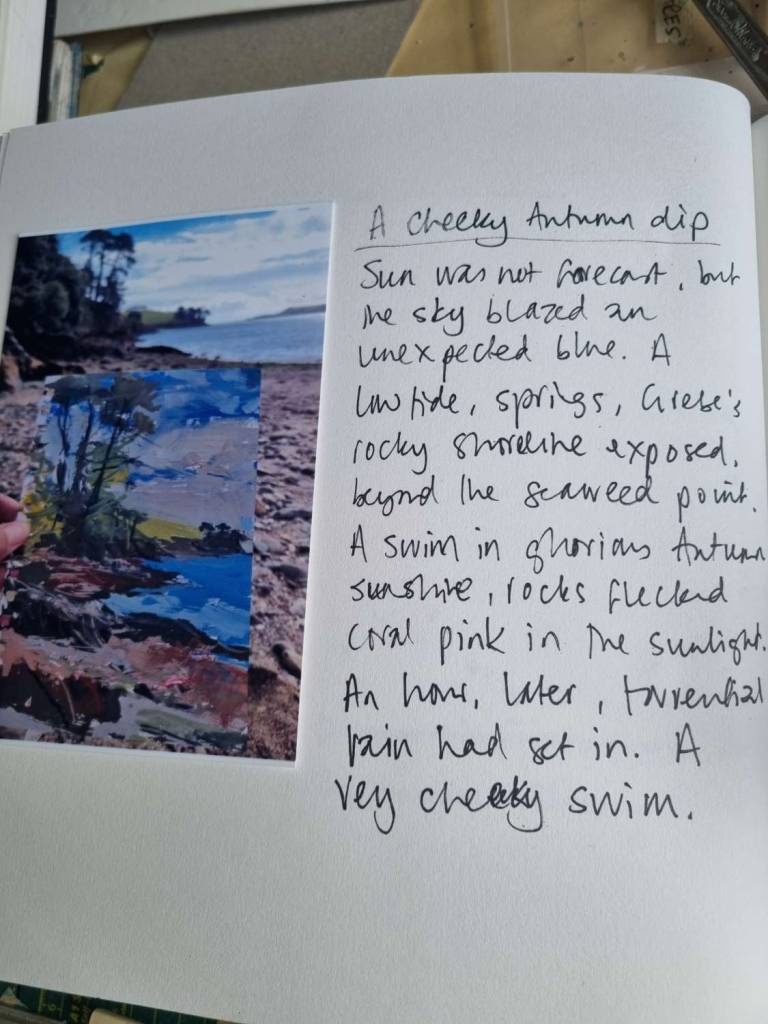 A cheeky Autumn dip
Sun was not forecast, but
the sky blazed an
unexpected blue. A
low tide, springs, Grebe's
rocky shoreline exposed,
beyond the seaweed point.
A swim in glorious Autumn
sunshine, rocks flecked
coral pink in the sunlight.
An hour, later, torrential
rain had set in. A
very cheeky swim.